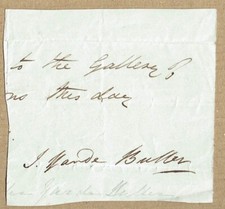 to the Gallery
this day
J. Yarde Buller